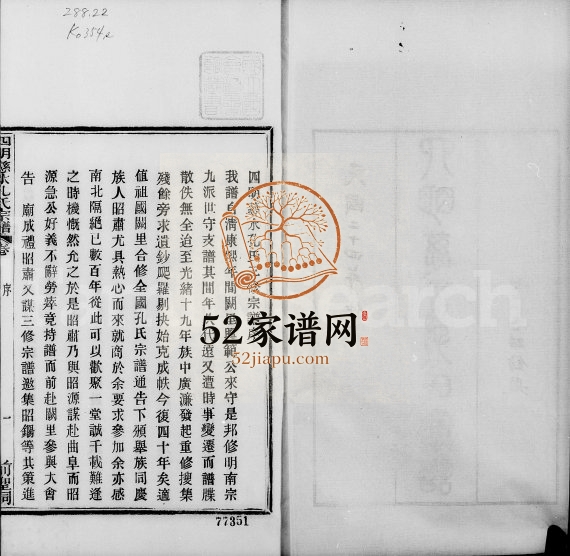 288.22
Ko354.2
四明慈水孔氏三修宗譜序
我譜自清康熙年間闕里興範公來守是邦修明南宗
九派世守支譜其間年代遠又遭時事變遷而譜牒
散佚無全迨至光緒十九年族中廣濂發起重修搜集
殘餘旁求遺鈔爬羅剔抉始克成帙今復四十年矣適
値祖國闕里合修全國孔氏宗譜通告下頒舉族同慶
族人昭肅尤具熱心而來就商於余要求參加余亦感
南北隔絕已數百年從此可以歡聚一堂誠千載難逢
之時機慨然允之於是昭肅乃與昭源謀赴曲阜而昭
源急公好義不辭勞瘁竟持譜而前赴闕里參與大會
告廟成禮昭肅又謀三修宗譜邀集昭鍚等共策進
四明慈水孔氏宗譜 卷
序
一
前聖祠
77351
52家谱网
52jiapu.com